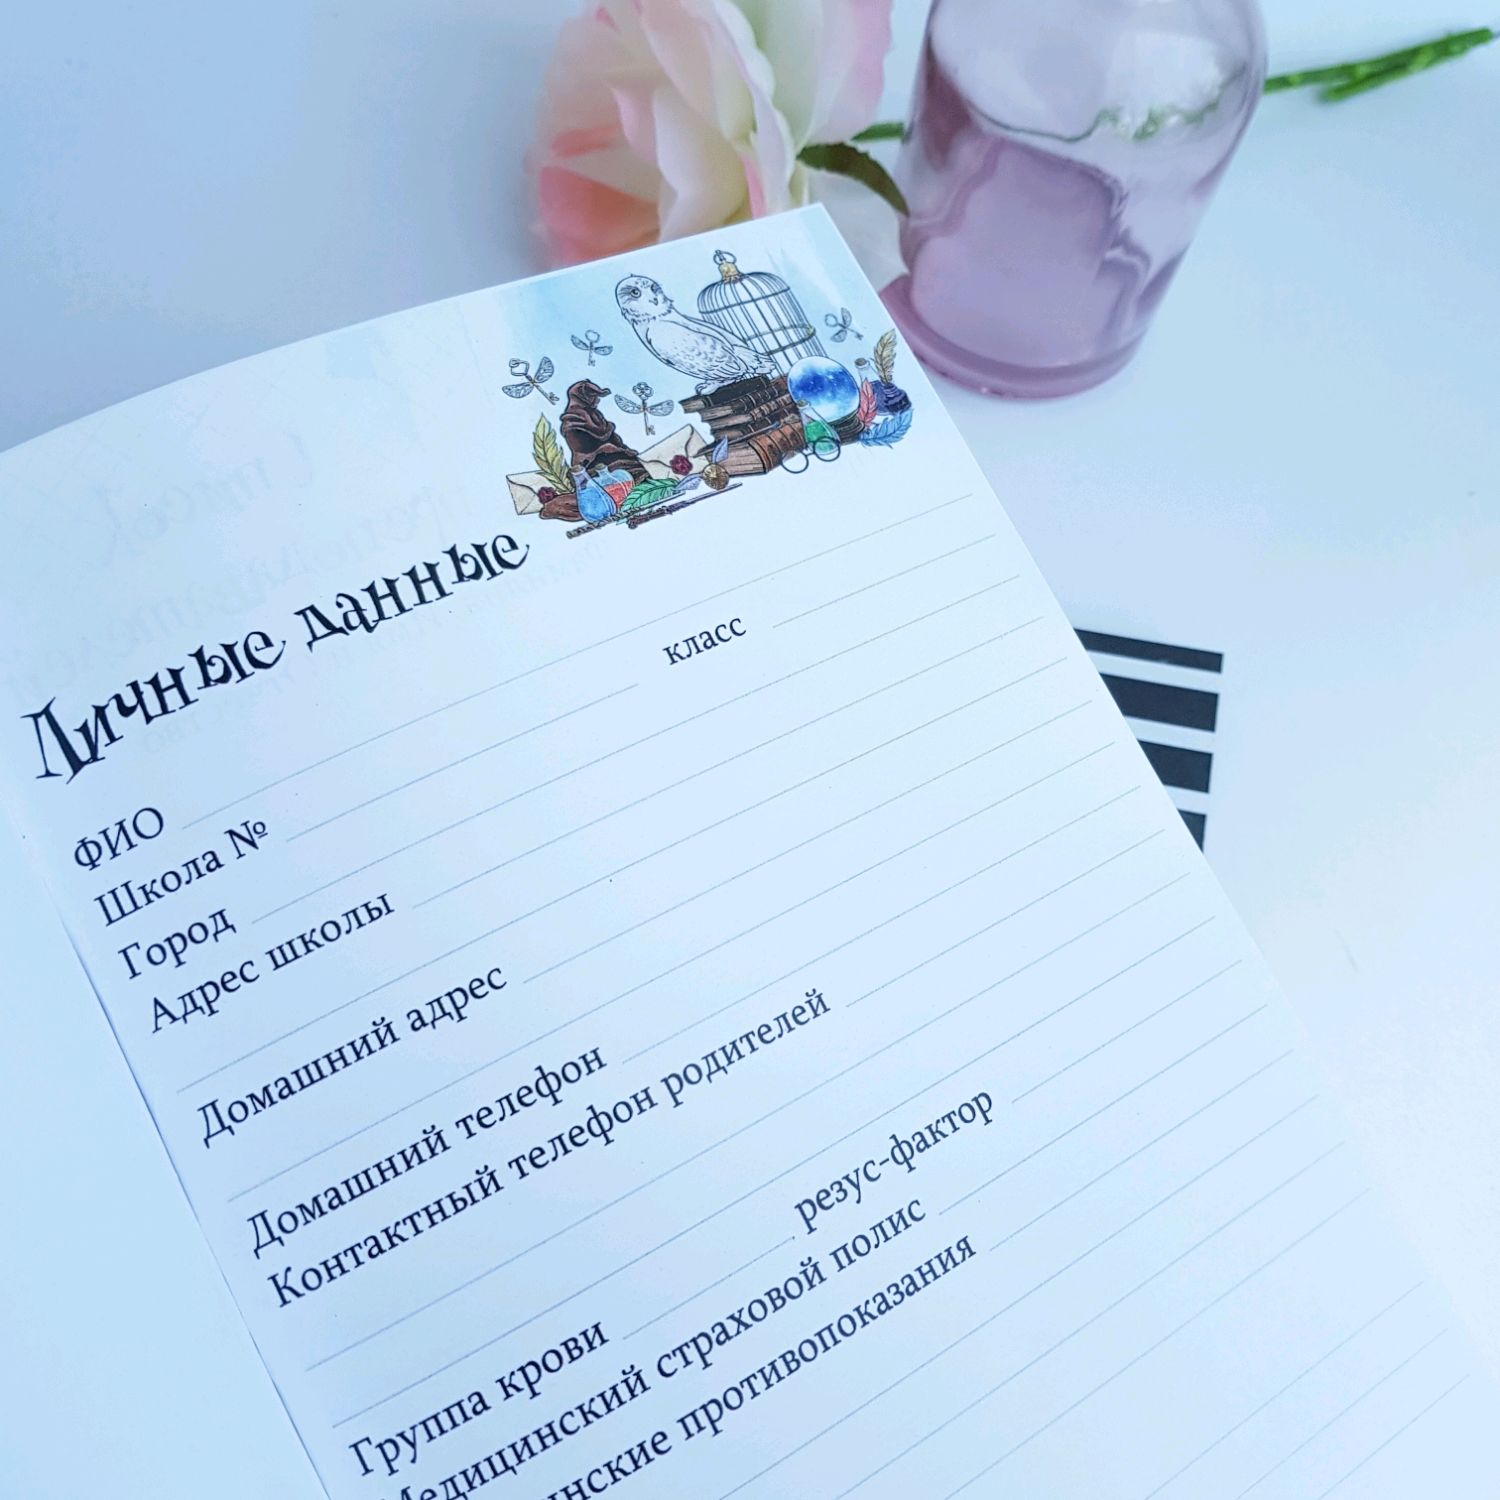 Личные данные
ФИО
Школа № класс
Город
Адрес школы
Домашний адрес
Домашний телефон
Контактный телефон родителей
Группа крови резус-фактор
Медицинский страховой полис
противопоказания